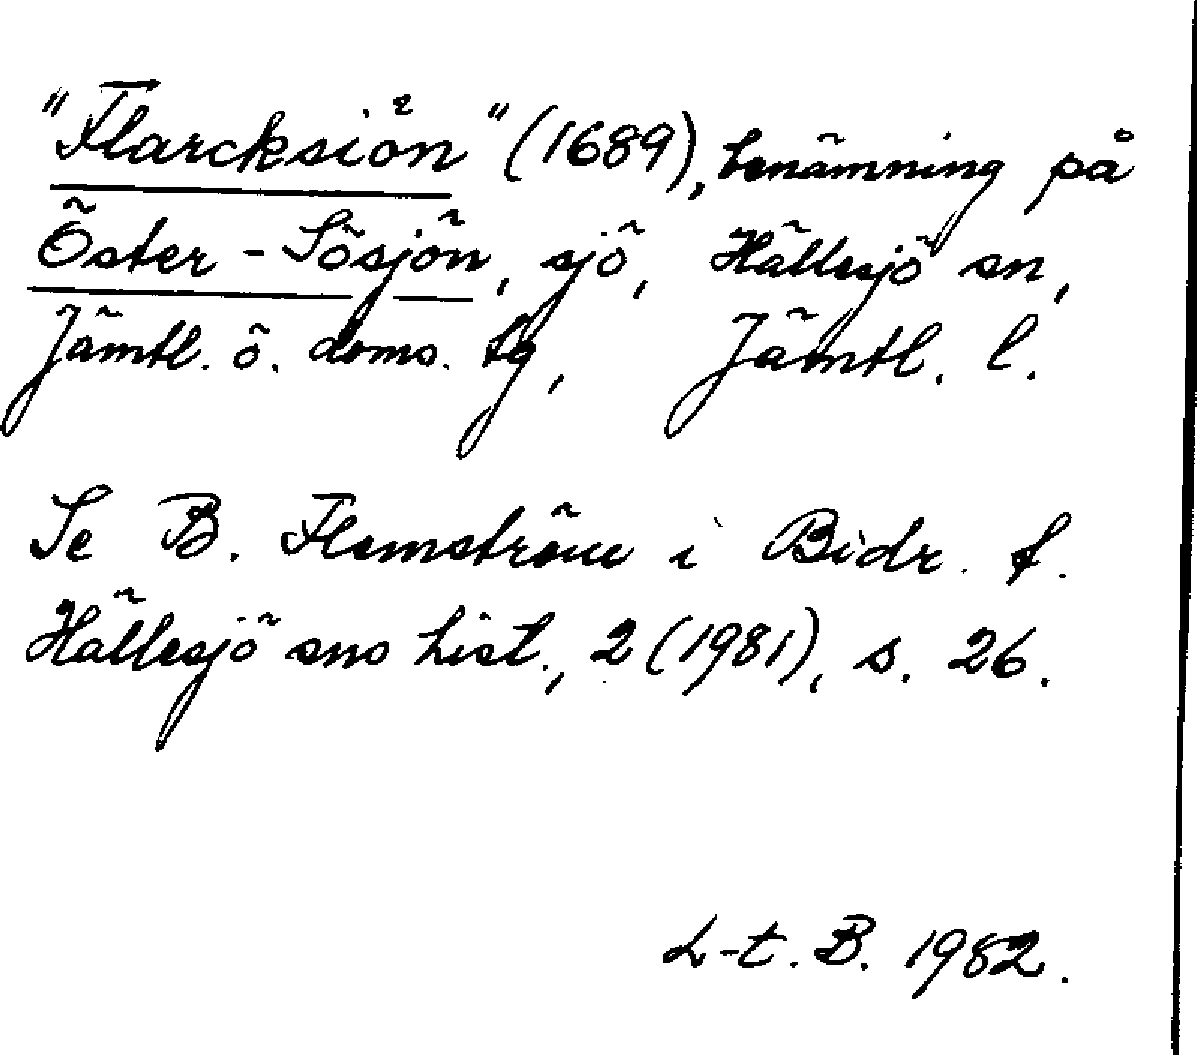 "Flarcksiön" (1689), benämning på
Öster-Sösjön, sjö, Hällesjö sn,
Jämtl. ö. doms. tg, Jämtl. l.
Se B. Flemström i Bidr. t.
Hällesjö sns hist., 2 (1981), s. 26.
L-t. B. 1982.